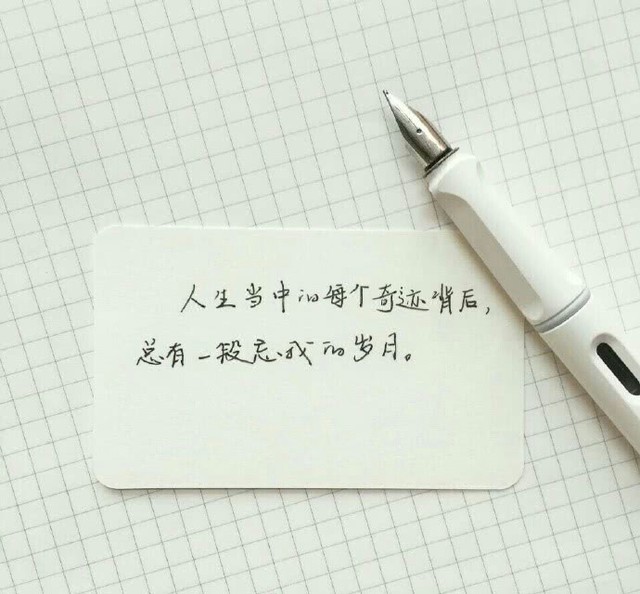 人生当中的每个奇迹背后，
总有一段忘我的岁月。